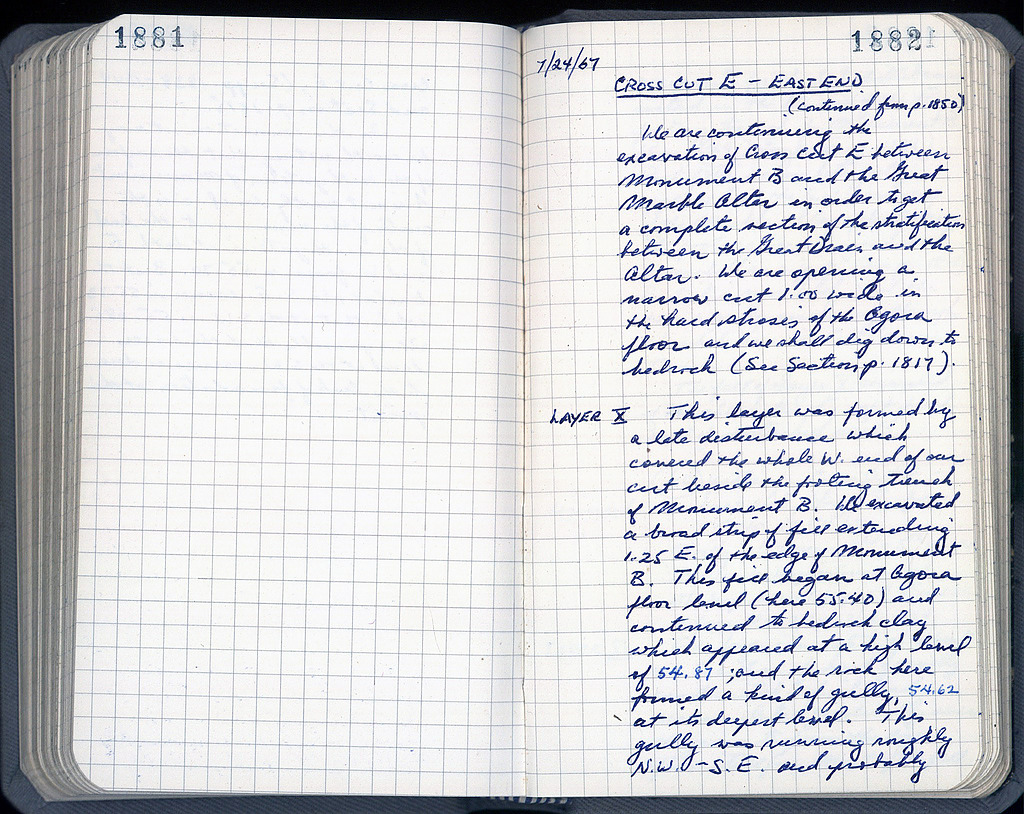 1881
1882
7/24/67
CROSS CUT E - EAST END
(continued from p. 1850)
We are continuing the
excavation of Cross Cut E between
Monument B and the Great
Marble Altar in order to get
a complete section of the stratification
between the Great Drain and the
Altar. We are opening a
narrow cut 1.00 wide in
the hard stroses of the Agora
floor and we shall dig down to
bedrock (See Section p. 1817).
LAYER X This layer was formed by
a late disturbance which
covered the whole W. end of our
cut beside the footing trench
of Monument B. We excavated
a broad strip of fill extending
1.25 E. of the edge of Monument
B. This fill began at Agora
floor level (here 55.40) and
continued to bedrock clay
which appeared at a high level
of 54.87; and the rock here
formed a kind of gully, 54.62
at its deepest level. This
gully was running roughly
N.W. - S.E. and probably